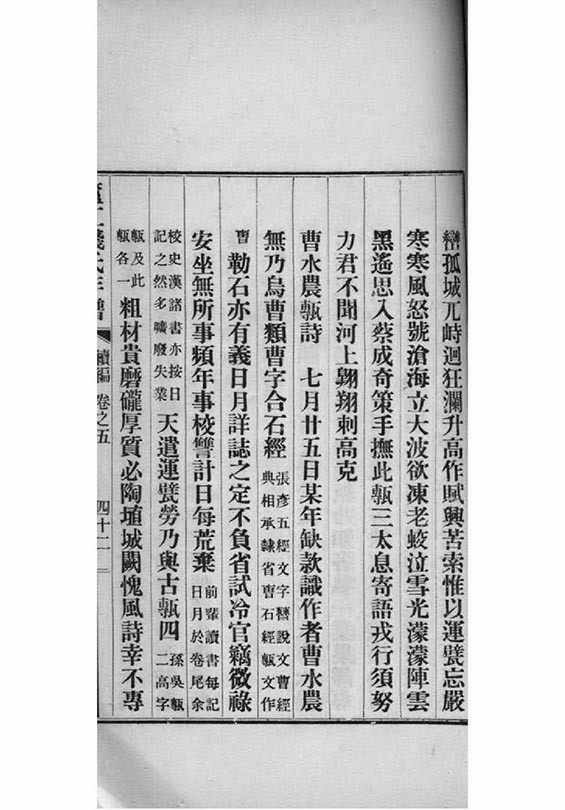 巒孤城兀峙迴狂瀾升高作賦興苦索惟以運甓忘嚴
寒寒風怒號滄海立大波欲凍老蛟泣雪光濛濛陣雲
黑遙思入蔡成奇策手撫此甎三太息寄語戎行須努
力君不聞河上翺翔刺高克
曹水農甎詩　七月廿五日某年缺款識作者曹水農
無乃烏曹類曹字合石經張彥五經文字𣍘說文曹經
典相承隸省曺石經甎文作
曺勒石亦有義日月詳誌之定不負省試冷官竊微祿
安坐無所事頻年事校讐計日每荒棄前輩讀書每記
日月於卷尾余
校史漢諸書亦按日
記之然多曠廢失業天遣運甓勞乃與古甎四孫吳甎
二高字
甎及此
甎各一粗材貴磨礲厚質必陶埴城闕愧風詩幸不專
錢氏年譜　續編　卷之五　四十二